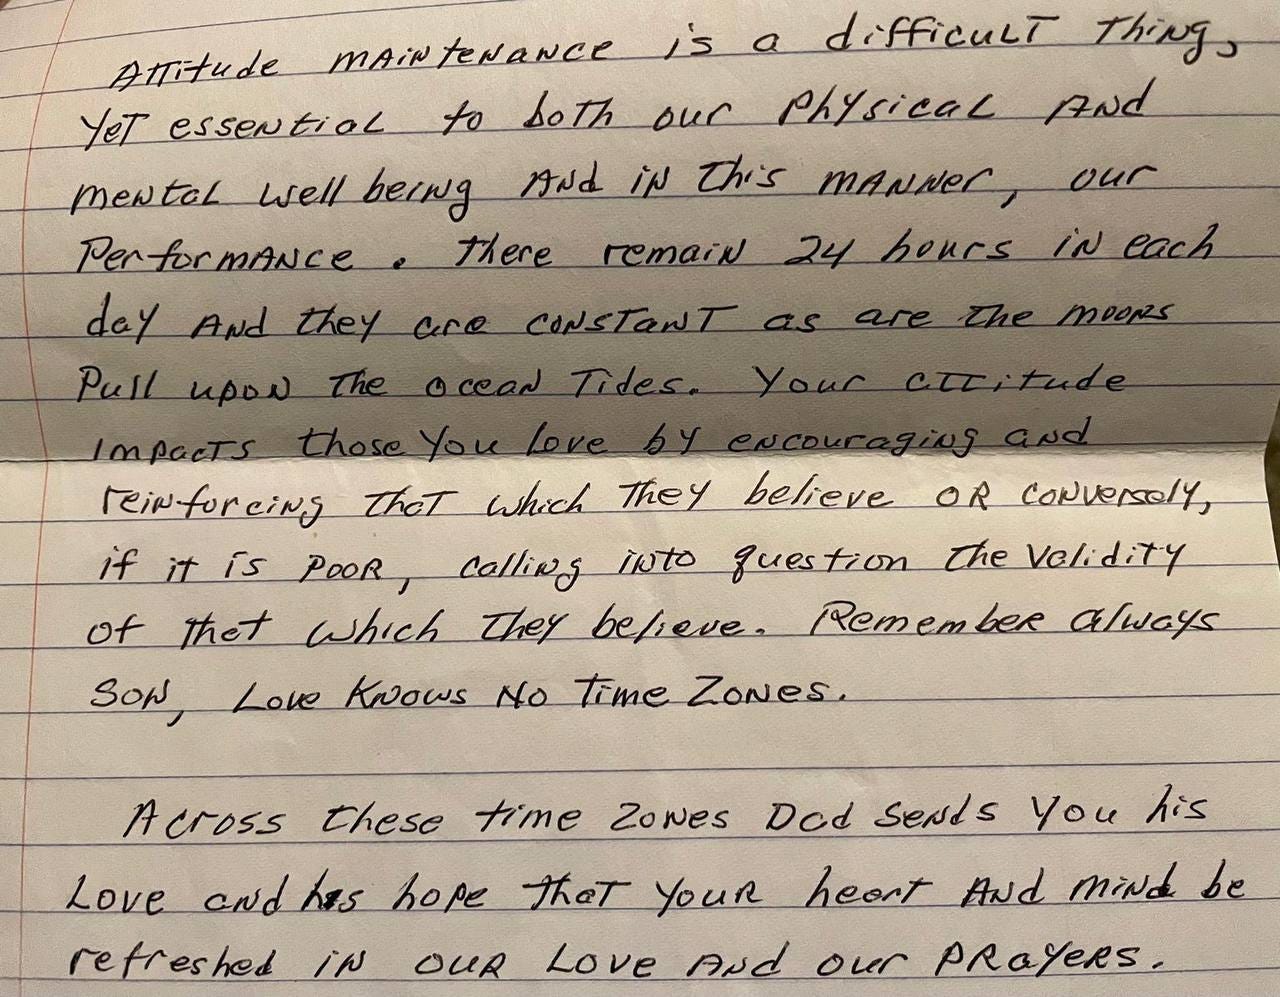 Attitude maintenance is a difficult thing,
yet essential to both our physical and
mental well being and in this manner, our
performance. There remain 24 hours in each
day and they are constant as are the moons
pull upon the ocean tides. Your attitude
impacts those you love by encouraging and
reinforcing that which they believe or conversely,
if it is poor, calling into question the validity
of that which they believe. Remember always
son, love knows no time zones.
Across these time zones Dad sends you his
love and his hope that your heart and mind be
refreshed in our love and our prayers.